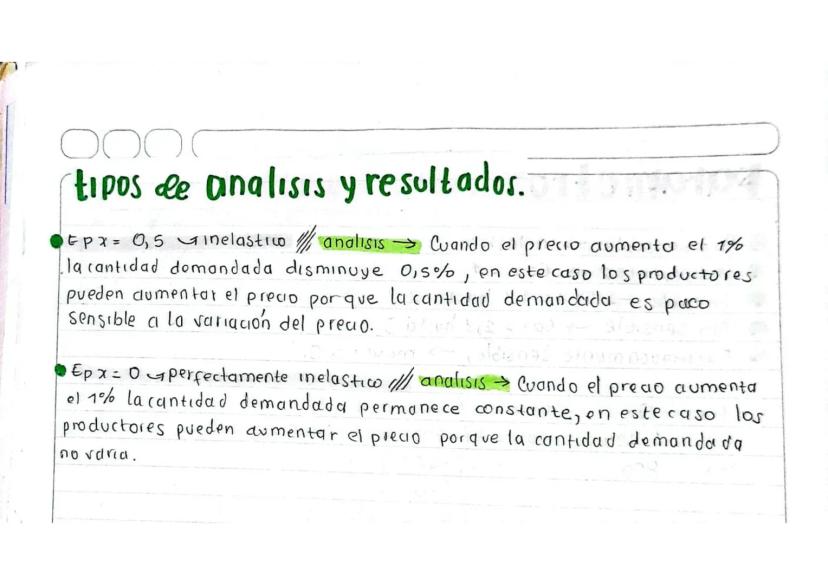 tipos de analisis y resultados.
Epx = 0,5 ↝ inelastico /// analisis → Cuando el precio aumenta el 1%
la cantidad domandada disminuye 0,5%, en este caso los productores
pueden aumentar el precio porque la cantidad demandada es poco
sensible a la variación del precio.
Epx = 0 ↝ perfectamente inelastico /// analisis → Cuando el precio aumenta
el 1% la cantidad demandada permanece constante, en este caso los
productores pueden aumentar el precio porque la cantidad demandada
no varia.